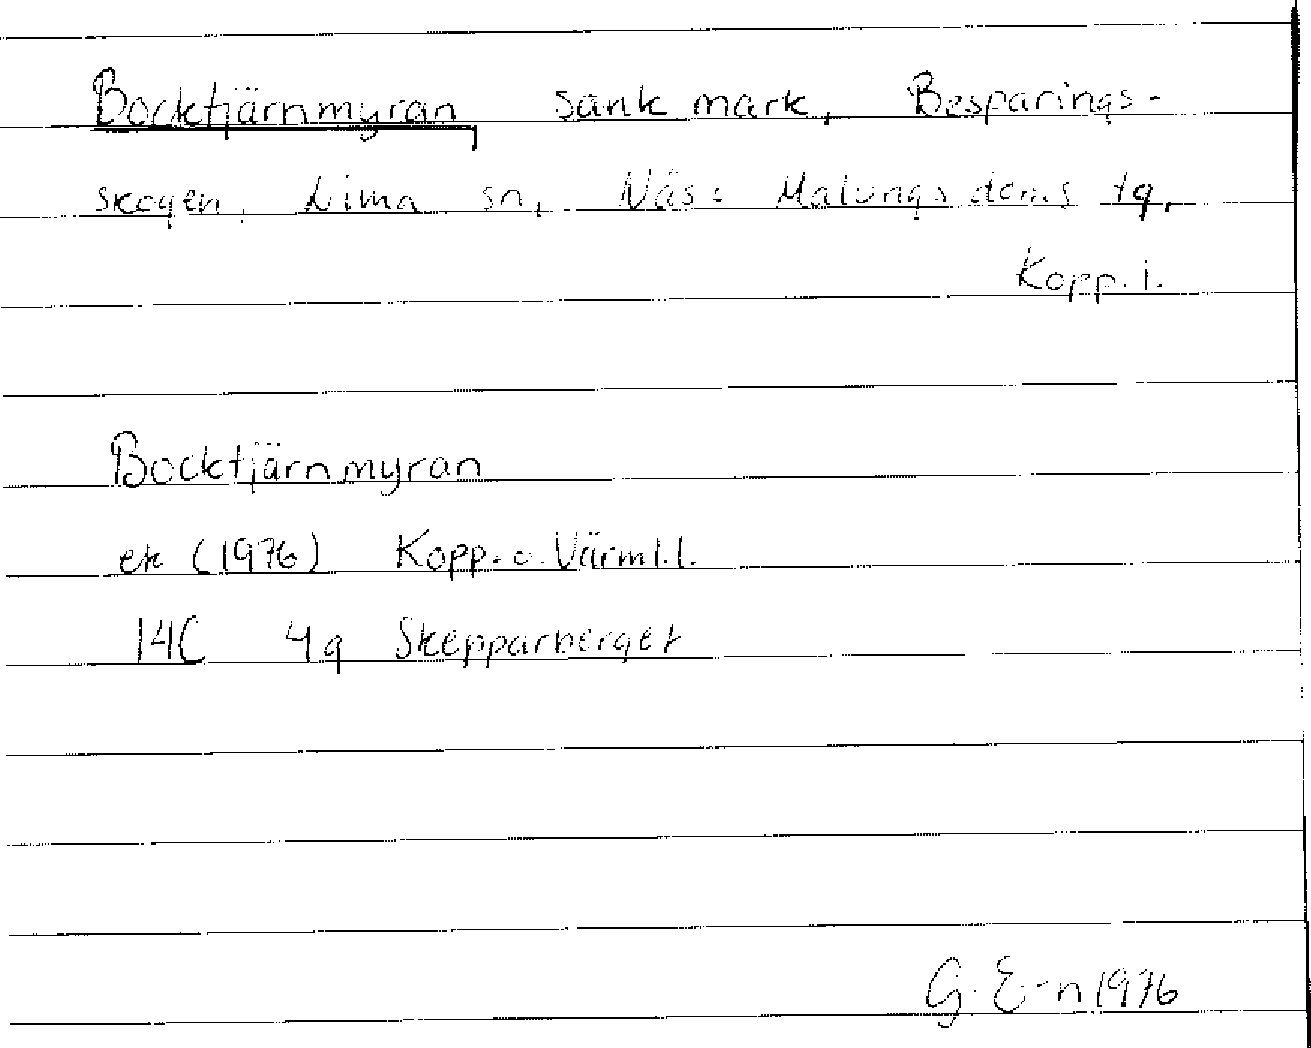 Bocktjärnmyran, sank mark, Besparings-
skogen, Lima sn, Näs o Malungs doms tg,
Kopp. l.
Bocktjärnmyran
ek (1976) Kopp. o. Värml. l.
14C 4g Skepparberget
G. E-n 1976